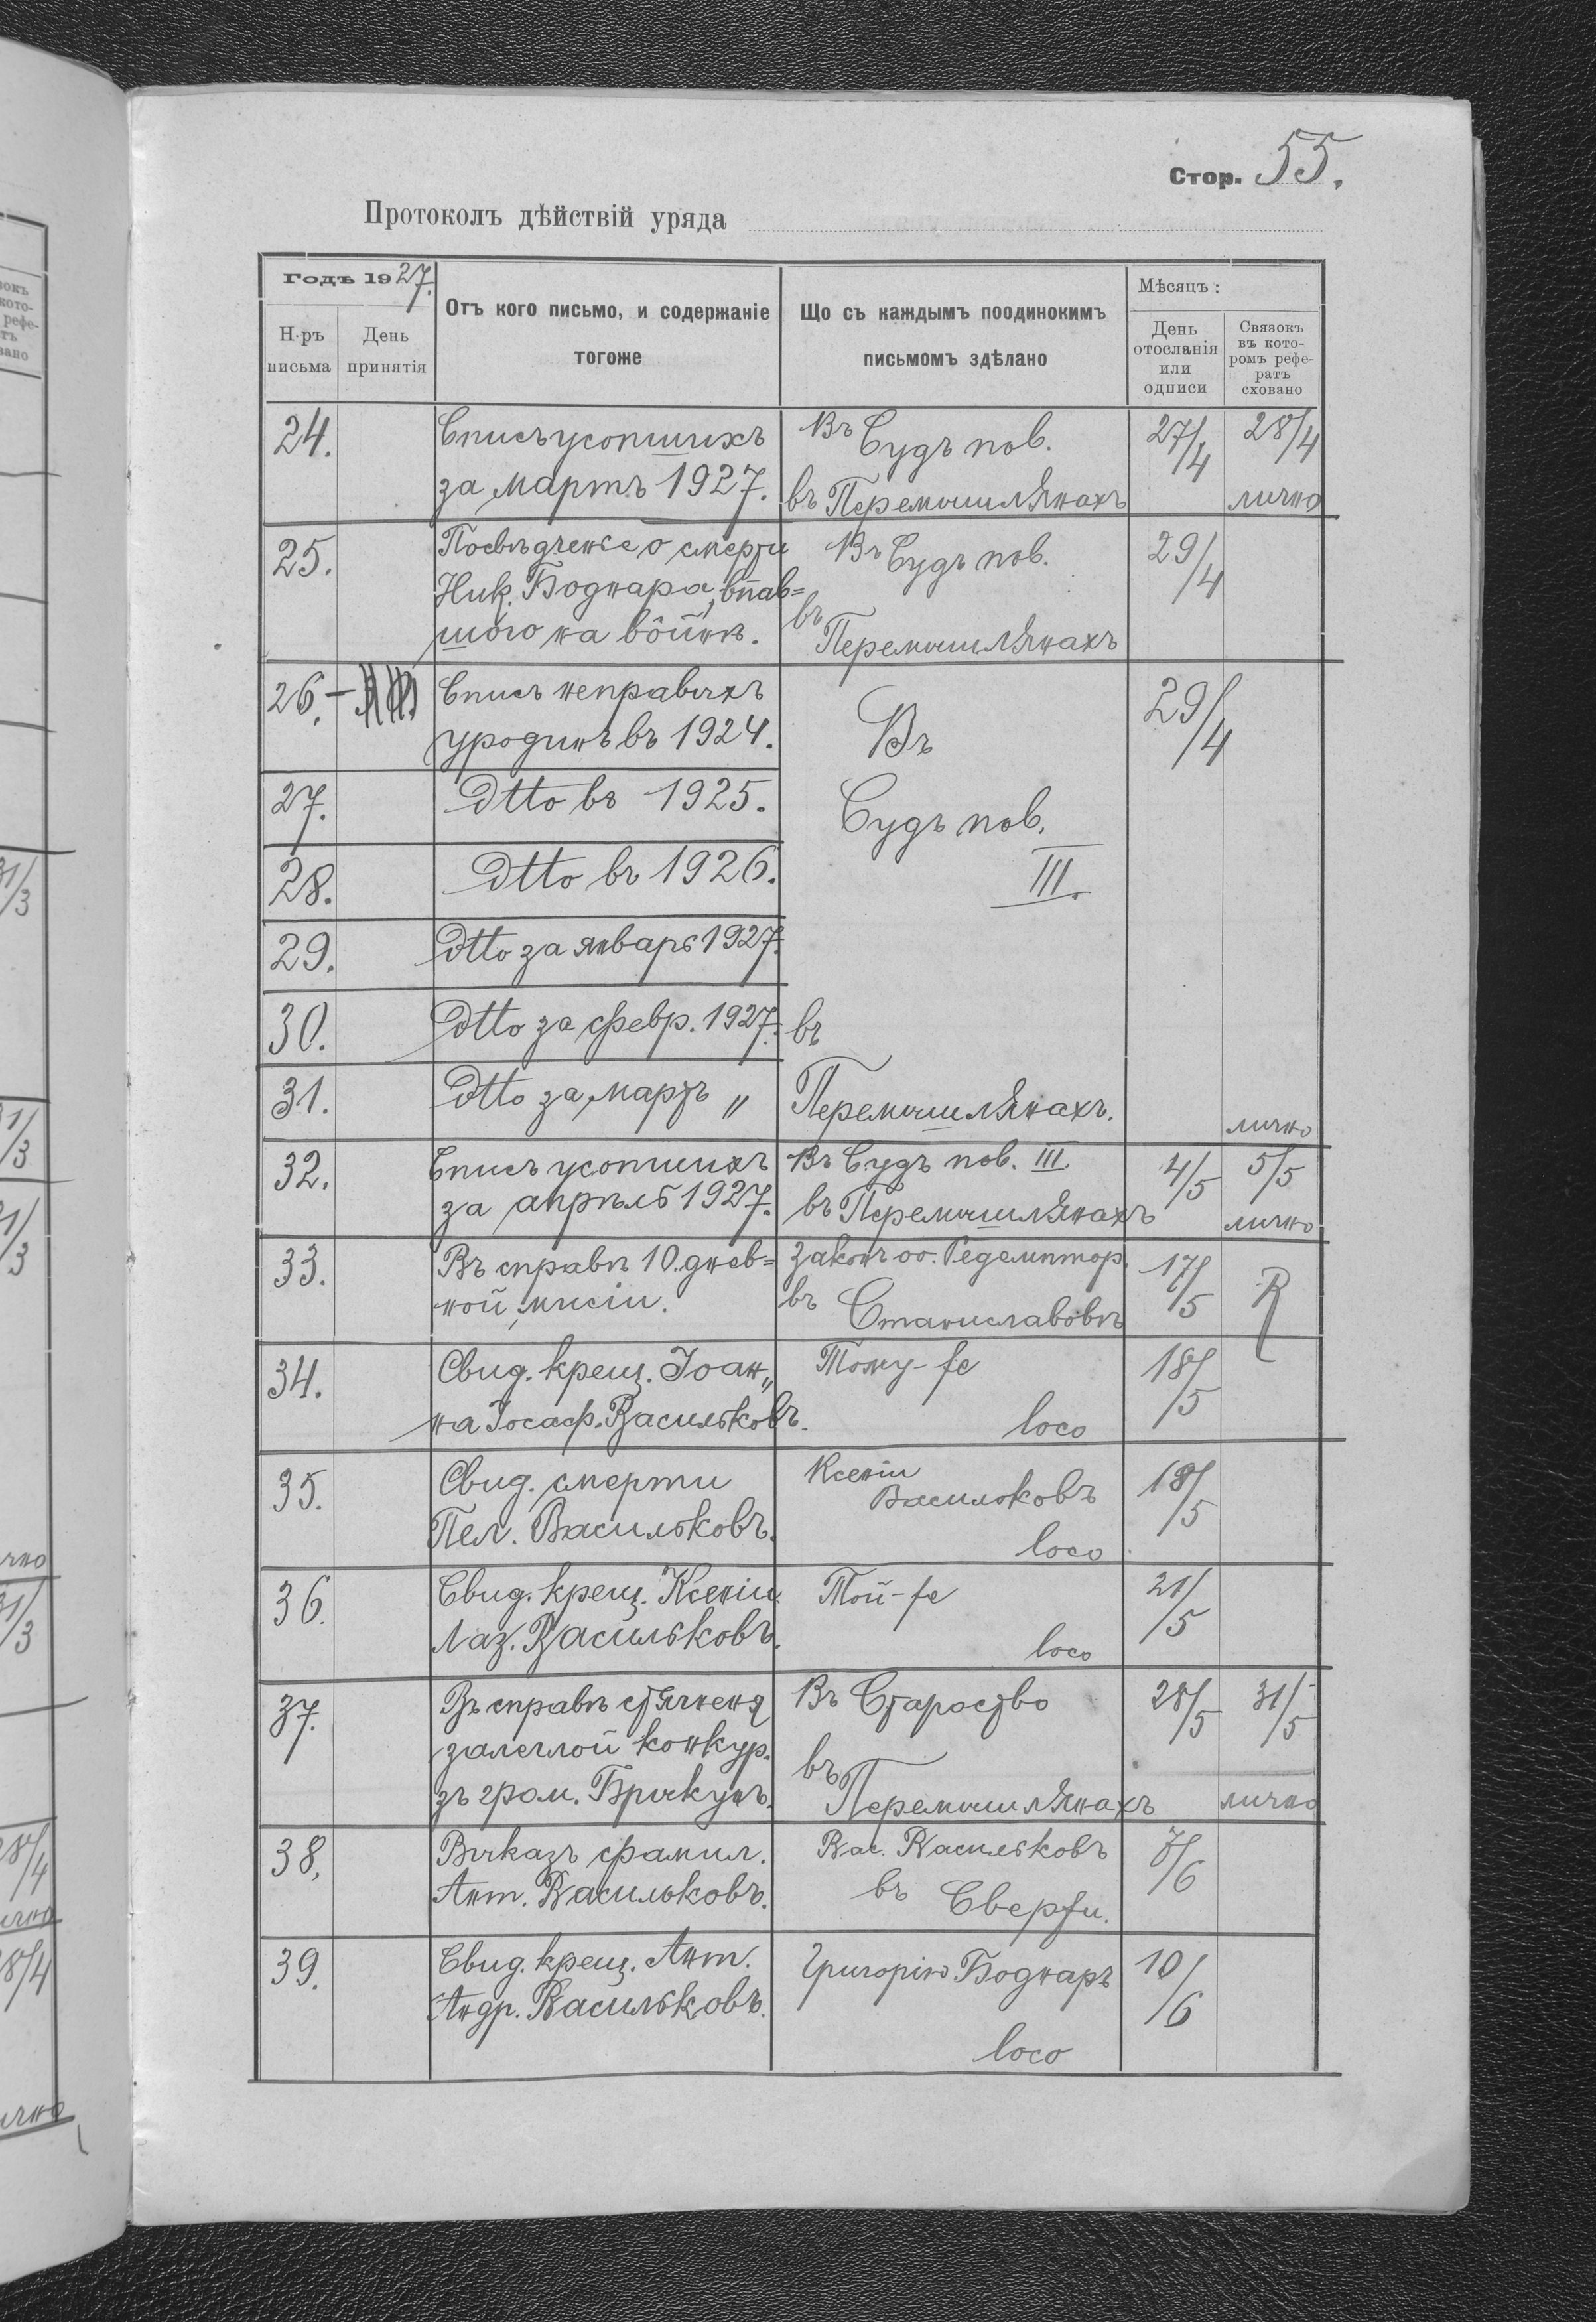 Стор. 55.
Протоколъ дѣйствій уряда
Годъ 1927.
Н-ръ письма
День принятія
Отъ кого письмо, и содержаніе
тогоже
Що съ каждымъ поодинокимъ
письмомъ здѣлано
Мѣсяцъ:
День
отосланія
или
одписи
Связокъ
въ кото-
ромъ рефе-
ратъ
сховано
24.
Списъ усопшихъ
за мартъ 1927.
Въ Судъ пов.
въ Перемышлянахъ
27/4
28/4
лично
25.
Посвѣдченье о смерти
Ник. Боднара, впав=
шого на войнѣ.
Въ Судъ пов.
въ
Перемышлянахъ
29/4
26.-
Списъ неправыхъ
уродинъ въ 1924.
Въ
29/4
27.
Dtto въ 1925.
Судъ пов.
28.
Dtto въ 1926.
III.
29.
Dtto за январь 1927.
30.
Dtto за февр. 1927.
въ
31.
Dtto за мартъ "
Перемышлянахъ.
лично
32.
Списъ усопшихъ
за апрѣль 1927.
Въ Судъ пов. III.
въ Перемышлянахъ
4/5
5/5
лично
33.
Въ справѣ 10.днев=
ной мисіи.
Законъ оо. Редемптор.
въ Станиславовѣ
17/5
R
34.
Свид. крещ. Іоан"
на Іосаф. Васильковъ.
Тому-же
loco
18/5
35.
Свид. смерти
Пел. Васильковъ.
Ксеніи
Васильковъ
loco
18/5
36.
Свид. крещ. Ксеніи
Лаз. Васильковъ.
Той-же
loco
21/5
37.
Въ справѣ стягненя
залеглой конкур.
зъ гром. Брыкунъ.
Въ Староство
въ
Перемышлянахъ
28/5
31/5
лично
38.
Выказъ фамил.
Ант. Васильковъ.
Вас. Васильковъ
въ Свержи.
7/6
39.
Свид. крещ. Ант.
Андр. Васильковъ.
Григорію Боднаръ
loco
10/6